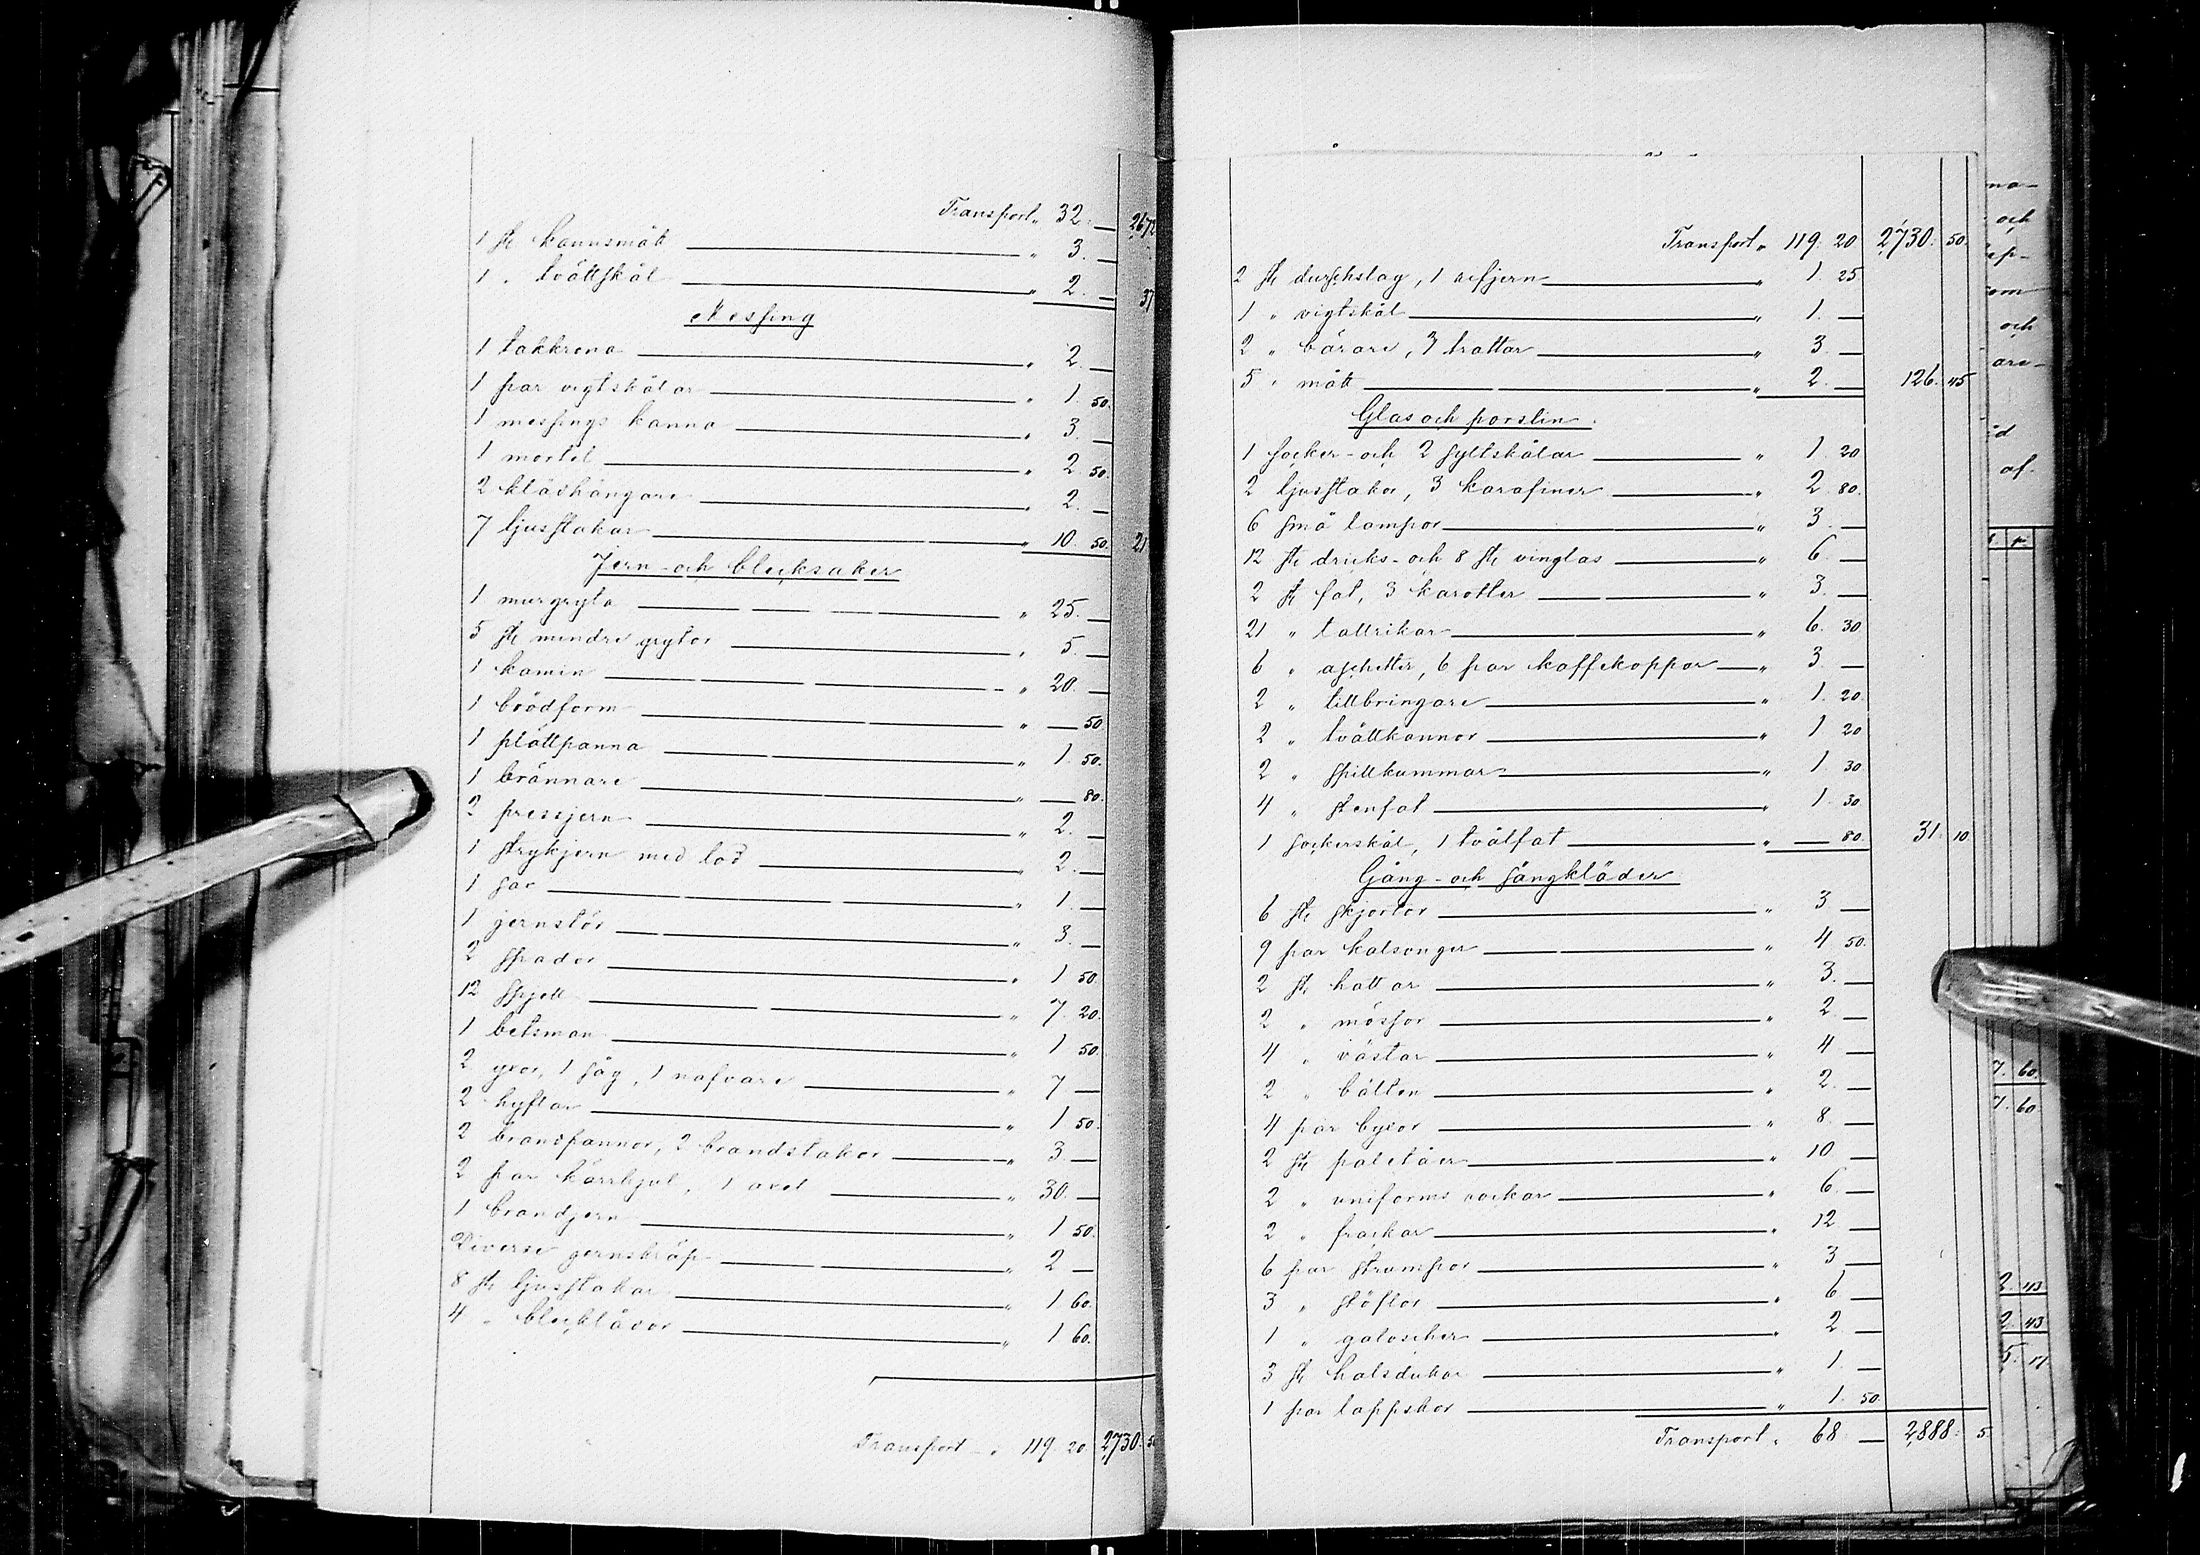 Transport „ 32. — 2672
1 st kannsmått „ 3. —
1 „ tvättskål „ 2. — 37
Messing
1 takkrona „ 2. —
1 par vigtskålar „ 1. 50.
1 messings kanna „ 3. —
1 mortel „ 2. 50.
2 klädhängare „ 2. —
7 ljusstakar „ 10. 50. 21
Jern- och blecksaker
1 murgryta „ 25. —
5 st mindre grytor „ 5. —
1 kamin „ 20. —
1 brödform „ — 50
1 plåttpanna „ 1. 50.
1 brännare „ — 80.
2 pressjern „ 2. —
1 strykjern med lod „ 2. —
1 sax „ 1. —
1 jernstör „ 3. —
2 spador „ 1 50.
12 spjell „ 7. 20.
1 betsman „ 1 50.
2 yxor, 1 såg, 1 nafvare „ 7 —
2 hyflar „ 1 50.
2 brandpannor, 2 brandstakar „ 3 —
2 par kärrhjul, 1 axel „ 30. —
1 brandjern „ 1 50.
Diverse jernskräp „ 2 —
8 st ljusstakar „ 1 60.
4 „ blecklådor „ 1 60.
Transport „ 119. 20. 2,730. 5
Transport „ 119. 20 2,730. 50.
2 st durchslag, 1 rifjern „ 1. 25
1 „ vigtskål „ 1. —
2 „ bärare, 3 trattar „ 3. —
5 „ mått „ 2. — 126. 45
Glas och porslin.
1 socker- och 2 syltskålar „ 1. 20
2 ljusstakar, 3 karafiner „ 2. 80.
6 små lampor „ 3. —
12 st dricks- och 8 st vinglas „ 6. —
2 st fat, 3 karotter „ 3. —
21 „ tallrikar „ 6. 30
6 „ aschetter, 6 par kaffekoppar „ 3. —
2 „ tillbringare „ 1. 20.
2 „ tvättkannor „ 1 20
2 „ spillkummar „ 1. 30
4 „ stenfat „ 1. 30
1 sockerskål, 1 tvålfat „ — 80. 31. 10
Gång- och sängkläder
6 st skjortor „ 3 —
9 par kalsonger „ 4 50.
2 st hattar „ 3. —
2 „ mössor „ 2. —
4 „ västar „ 4 —
2 „ bälten „ 2. —
4 par byxor „ 8. —
2 st paletåer „ 10. —
2 „ uniforms rockar „ 6. —
2 „ frackar „ 12 —
6 par strumpor „ 3 —
3 „ stöflor „ 6 —
1 „ galoscher „ 2 —
3 st halsdukar „ 1. —
1 par lappskor „ 1. 50.
Transport „ 68 — 2,888. 5
na-
och
om
och
are-
af.
7. 60.
7. 60
2. 43
2. 43